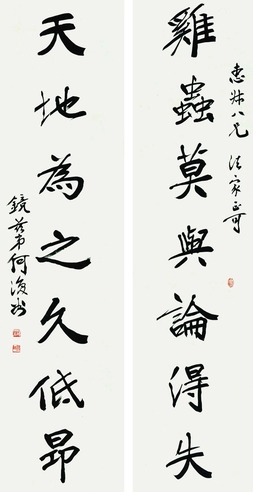 惠八兄 法家正可
雞蟲莫與論得失
天地為之久低昂
鏡弟何